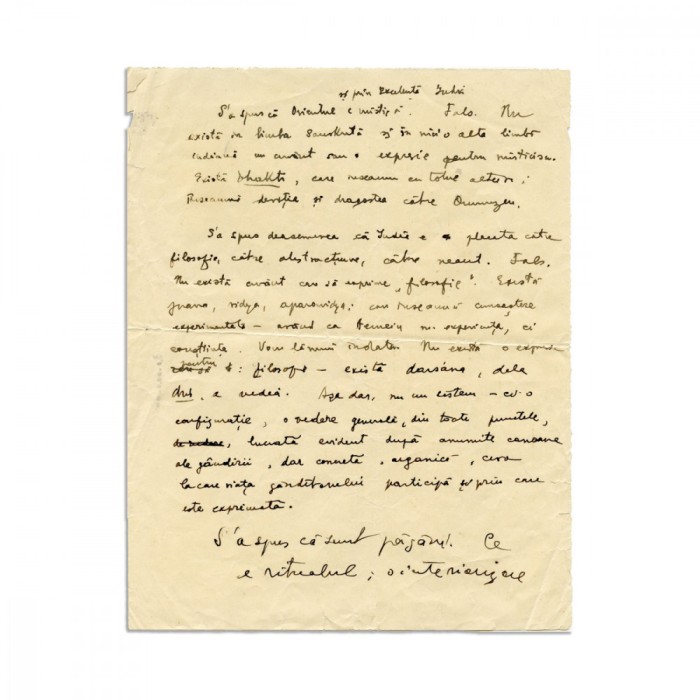 și prin excelență Indii
S'a spus că Orientul e mistic. Fals. Nu
există în limba sanskrită și în nici o altă limbă
indiană un cuvânt sau o expresie pentru misticism.
Există bhakti, care înseamnă cu totul altceva;
înseamnă devoția și dragostea către Dumnezeu.
S'a spus deasemenea că India e plecată către
filosofie, către abstracțiune, către neant. Fals.
Nu există cuvânt care să exprime „filosofie". Există
jnana, vidya, aparavidya; care înseamnă cunoaștere
experimentată – având ca temeiu nu experiența, ci
conștiința. Vom lămuri îndată. Nu există o expresie
pentru : filosof – există darsána, dela
drs, a vedea. Așa dar, nu un sistem – ci o
configurație, o vedere generală, din toate punctele,
lucrată evident după anumite canoane
ale gândirii, dar concretă, organică, ceva
la care viața gânditorului participă și prin care
este exprimată.
S'a spus că sunt păgâni. Ce
e ritualul; o interiorizare